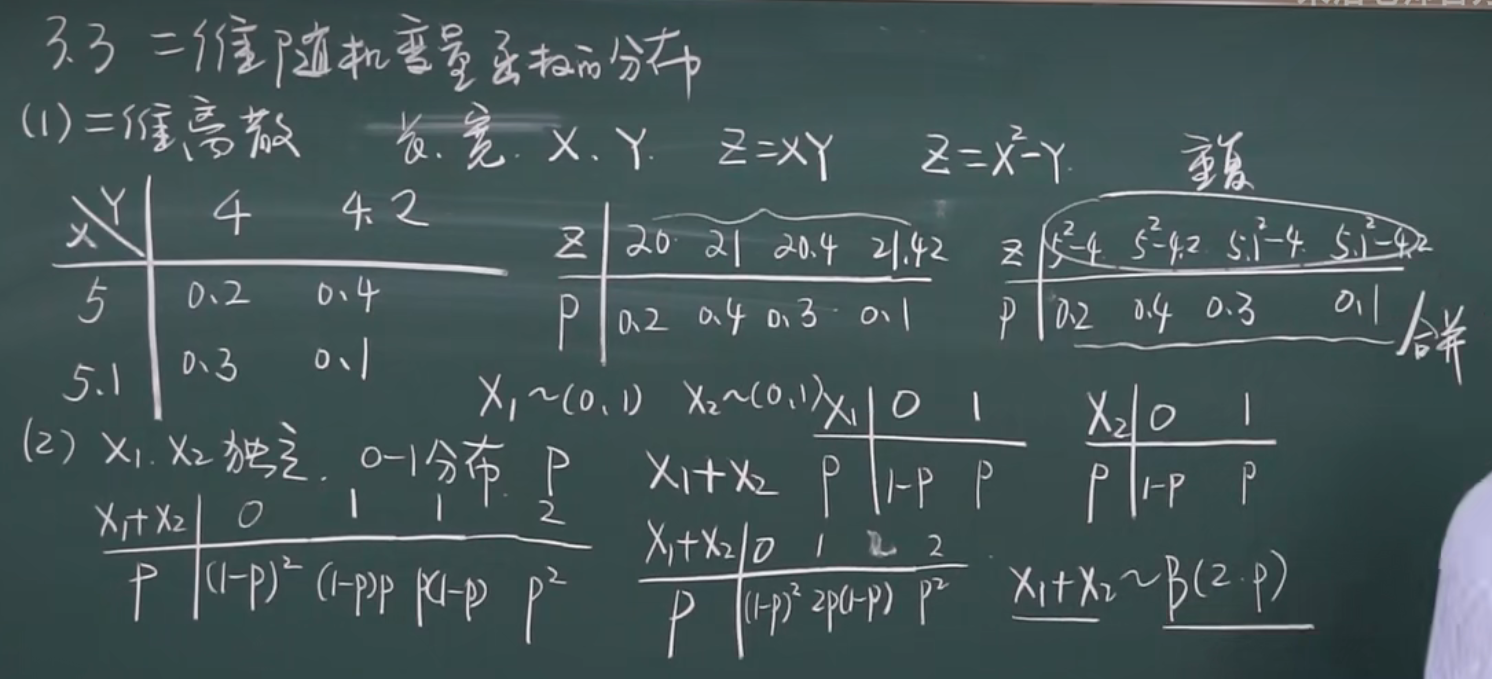 3.3 二维随机变量函数的分布
(1) 二维离散 长、宽. X、Y. Z=XY Z=X²-Y. 重复
X\Y | 4 4.2
5 | 0.2 0.4
5.1 | 0.3 0.1
Z | 20 21 20.4 21.42
P | 0.2 0.4 0.3 0.1
Z | 5²-4 5²-4.2 5.1²-4 5.1²-4.2
P | 0.2 0.4 0.3 0.1 合并
X₁~(0,1) X₂~(0,1)
(2) X₁.X₂独立. 0-1分布 P X₁+X₂
X₁ | 0 1
P | 1-P P
X₂ | 0 1
P | 1-P P
X₁+X₂ | 0 1 1 2
P | (1-p)² (1-p)p p(1-p) p²
X₁+X₂ | 0 1 2
P | (1-p)² 2p(1-p) p²
X₁+X₂~B(2.p)